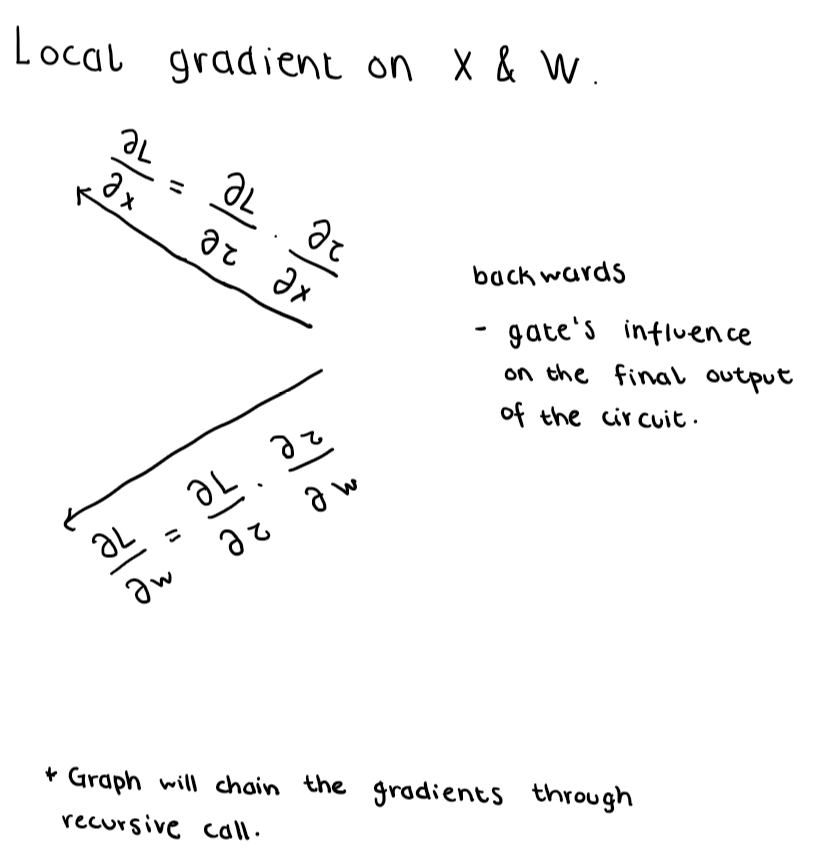 Local gradient on X & W.
∂L/∂x = ∂L/∂z · ∂z/∂x
backwards
- gate's influence
on the final output
of the circuit.
∂L/∂w = ∂L/∂z · ∂z/∂w
* Graph will chain the gradients through
recursive call.